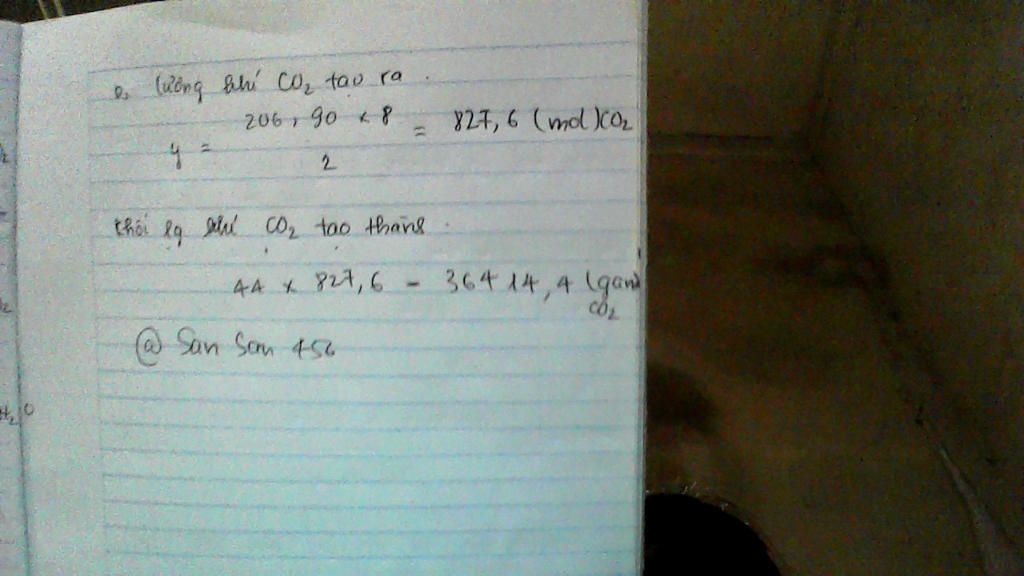 e, lượng khí CO₂ tạo ra.
y = 206,90 × 8 / 2 = 827,6 (mol) CO₂
khối lg khí CO₂ tạo thành.
44 × 827,6 = 36414,4 (gam)
CO₂
@ San San 456
H₂O